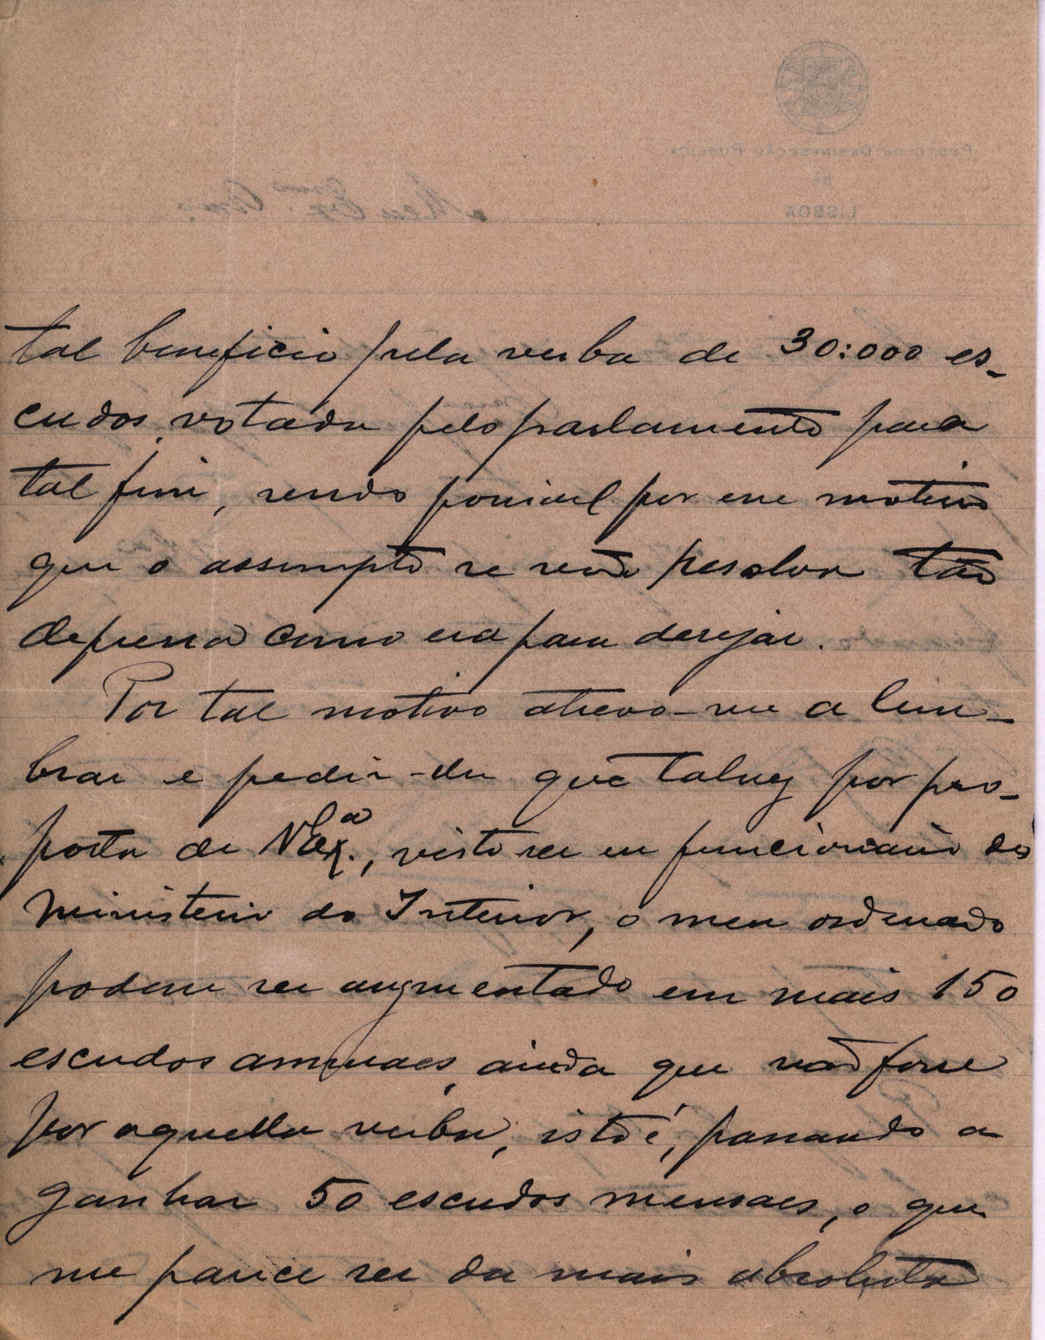 POSTO DE DESINFECÇÃO PUBLICA
DE
LISBOA
Meu Exmo Amo
tal beneficio pela verba de 30:000 es-
cudos, votada pelo parlamento para
tal fim, sendo possivel por esse motivo
que o assumpto se não resolva tão
depressa como era para desejar.
Por tal motivo atrevo-me a lem-
brar e pedir-lhe que talvez por pro-
posta de V. Exa., visto ser eu funcionario do
Ministerio do Interior, o meu ordenado
podesse ser augmentado em mais 150
escudos annuaes, ainda que não fosse
por aquella verba, isto é, passando a
ganhar 50 escudos mensaes, o que
me parece ser da mais absoluta